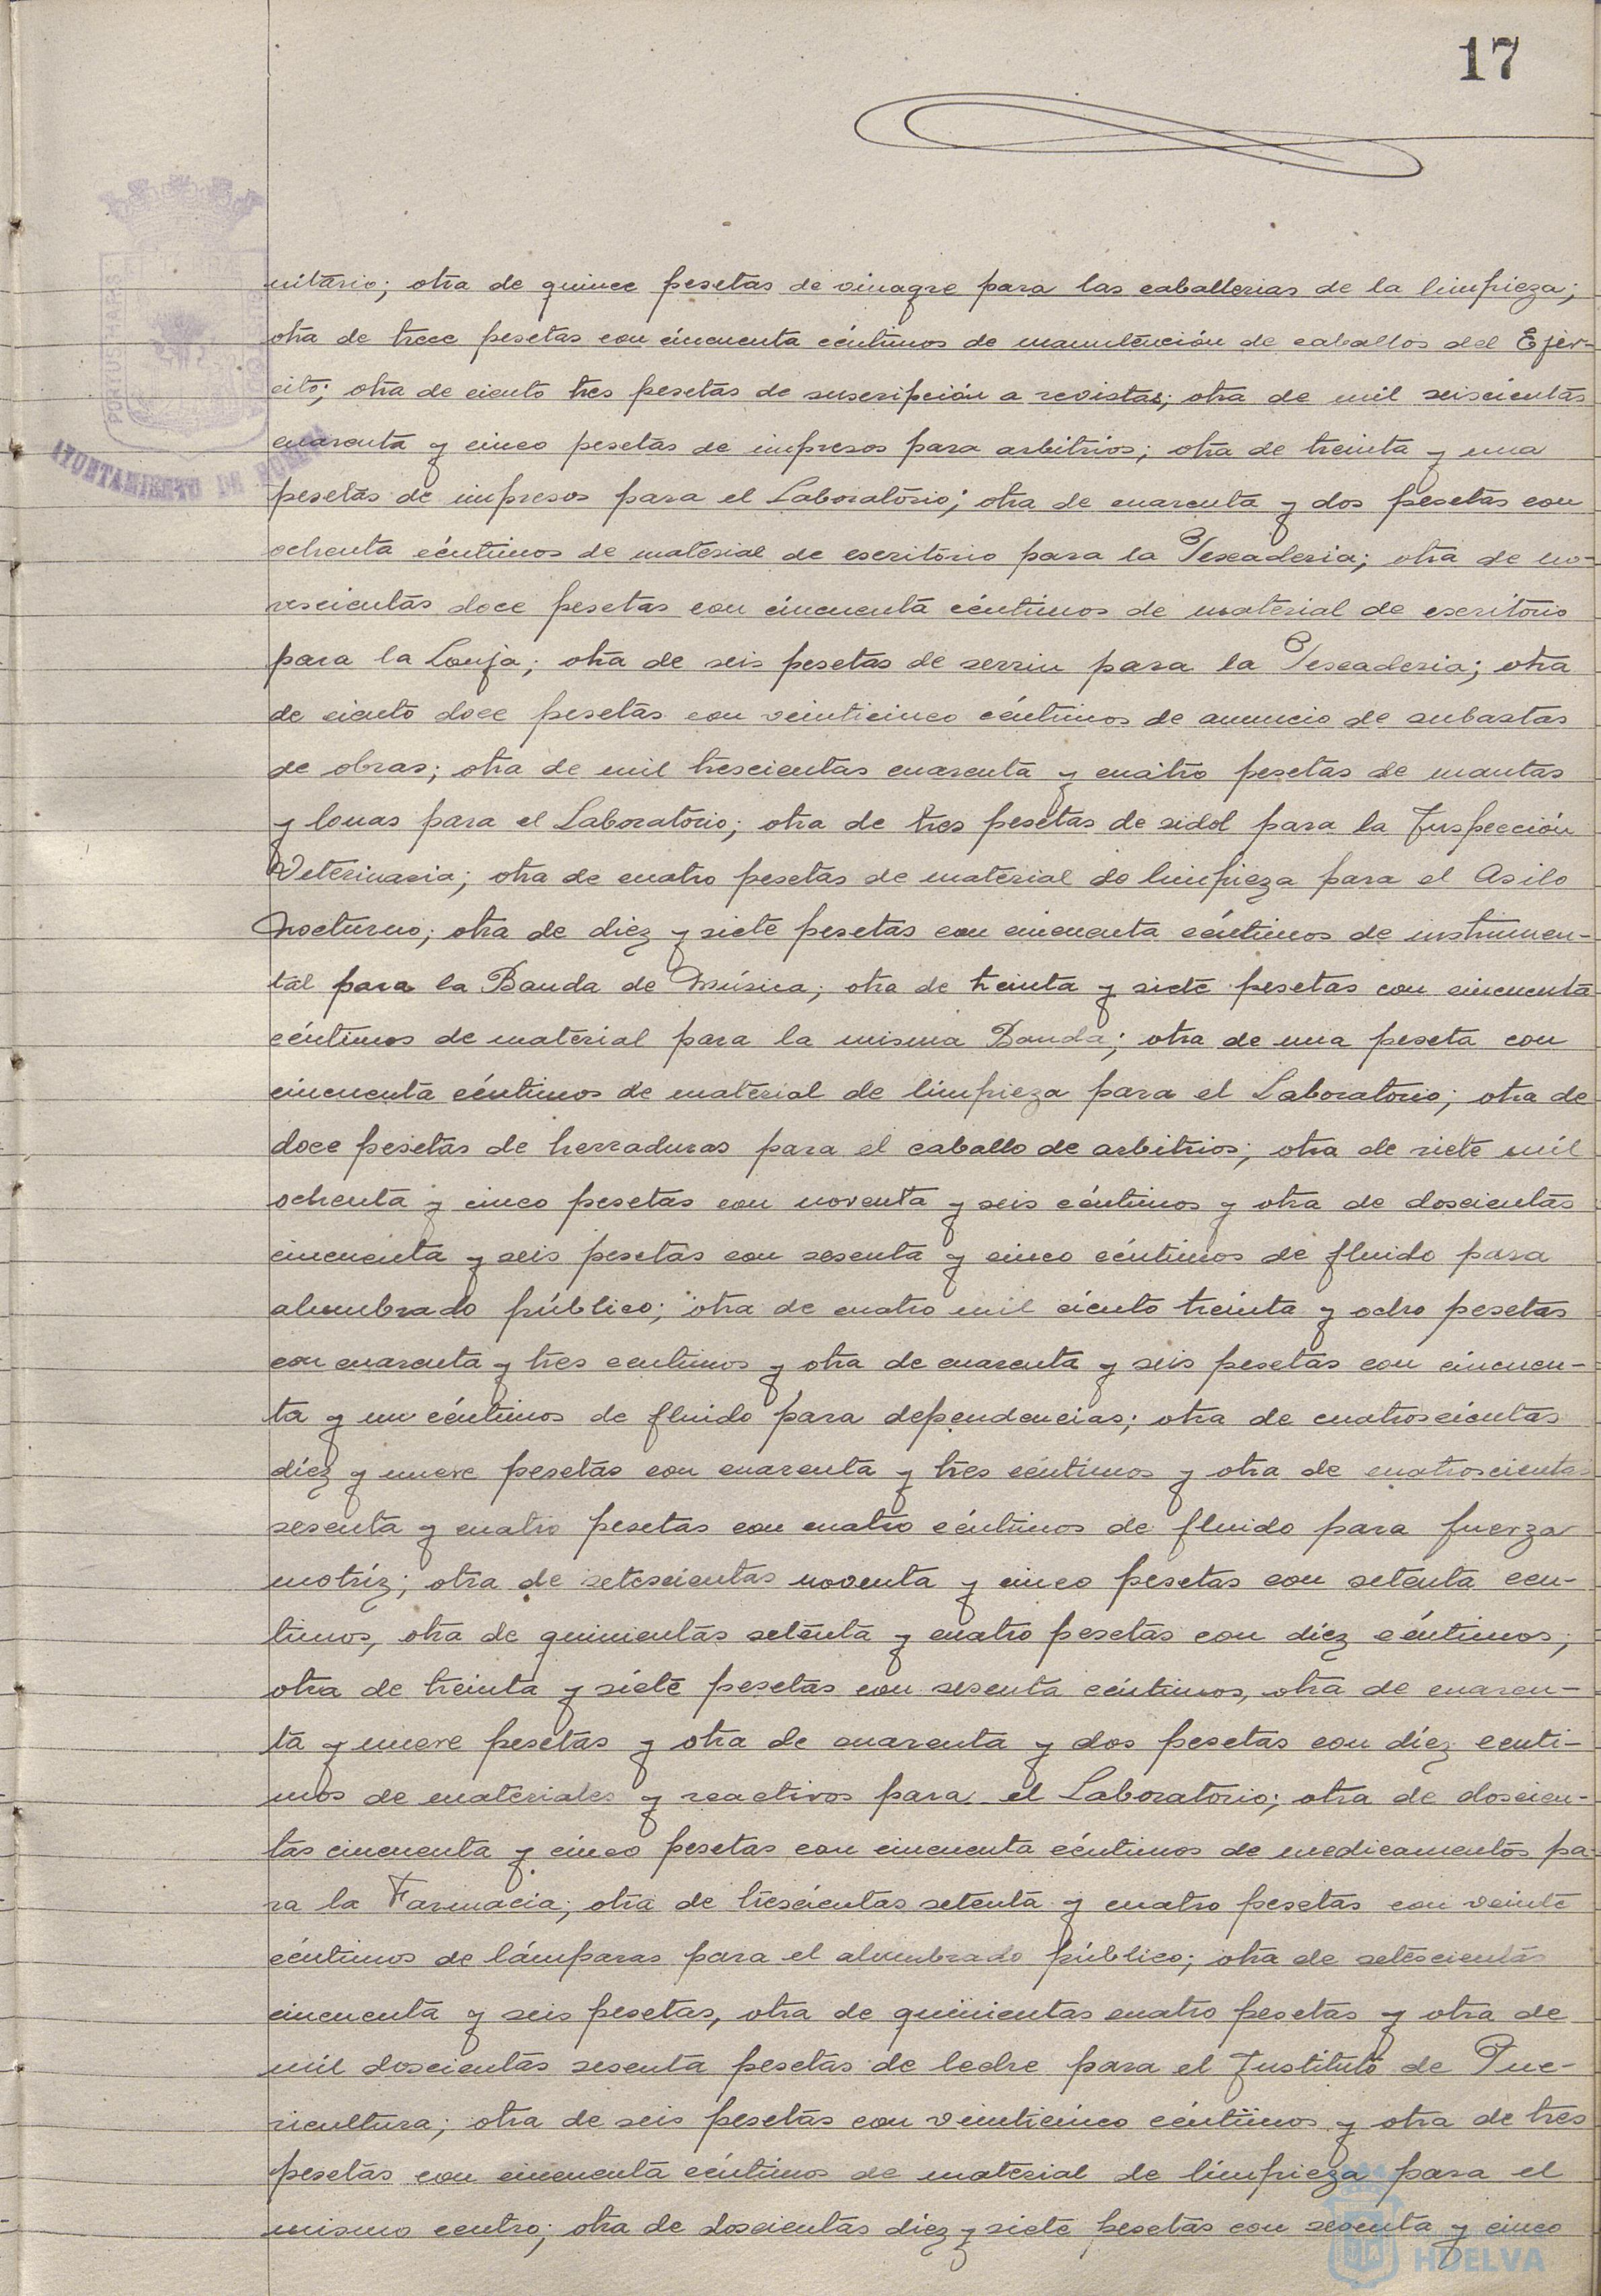 17
PORTUS MARIS
AYUNTAMIENTO DE HUELVA
nitario; otra de quince pesetas de vinagre para las caballerias de la limpieza;
otra de trece pesetas con cincuenta céntimos de manutención de caballos del Ejér-
cito; otra de ciento tres pesetas de suscripción a revistas; otra de mil seiscientas
cuarenta y cinco pesetas de impresos para arbitrios; otra de treinta y una
pesetas de impresos para el Laboratorio; otra de cuarenta y dos pesetas con
ochenta céntimos de material de escritorio para la Pescaderia; otra de no-
vescientas doce pesetas con cincuenta céntimos de material de escritorio
para la Lonja; otra de seis pesetas de serrin para la Pescaderia; otra
de ciento doce pesetas con veinticinco céntimos de anuncio de subastas
de obras; otra de mil trescientas cuarenta y cuatro pesetas de mantas
y lonas para el Laboratorio; otra de tres pesetas de sidol para la Inspección
Veterinaria; otra de cuatro pesetas de material de limpieza para el Asilo
Nocturno; otra de diez y siete pesetas con cincuenta céntimos de instrumen-
tal para la Banda de Música; otra de treinta y siete pesetas con cincuenta
céntimos de material para la misma Banda; otra de una peseta con
cincuenta céntimos de material de limpieza para el Laboratorio; otra de
doce pesetas de herraduras para el caballo de arbitrios; otra de siete mil
ochenta y cinco pesetas con noventa y seis céntimos y otra de doscientas
cincuenta y seis pesetas con sesenta y cinco céntimos de fluido para
alumbrado público; otra de cuatro mil ciento treinta y ocho pesetas
con cuarenta y tres centimos y otra de cuarenta y seis pesetas con cincuen-
ta y un céntimos de fluido para dependencias; otra de cuatroscientas
diez y nueve pesetas con cuarenta y tres céntimos y otra de cuatroscientas
sesenta y cuatro pesetas con cuatro céntimos de fluido para fuerza
motríz; otra de setescientas noventa y cinco pesetas con setenta cen-
timos, otra de quinientas setenta y cuatro pesetas con diez céntimos;
otra de treinta y siete pesetas con sesenta céntimos, otra de cuaren-
ta y nueve pesetas y otra de cuarenta y dos pesetas con diez centi-
mos de materiales y reactivos para el Laboratorio; otra de doscien-
tas cincuenta y cinco pesetas con cincuenta céntimos de medicamentos pa-
ra la Farmacia; otra de trescientas setenta y cuatro pesetas con veinte
céntimos de lámparas para el alumbrado público; otra de setescientas
cincuenta y seis pesetas, otra de quinientas cuatro pesetas y otra de
mil doscientas sesenta pesetas de leche para el Instituto de Pue-
ricultura; otra de seis pesetas con veinticinco céntimos y otra de tres
pesetas con cincuenta céntimos de material de limpieza para el
mismo centro; otra de doscientas diez y siete pesetas con sesenta y cinco
HUELVA